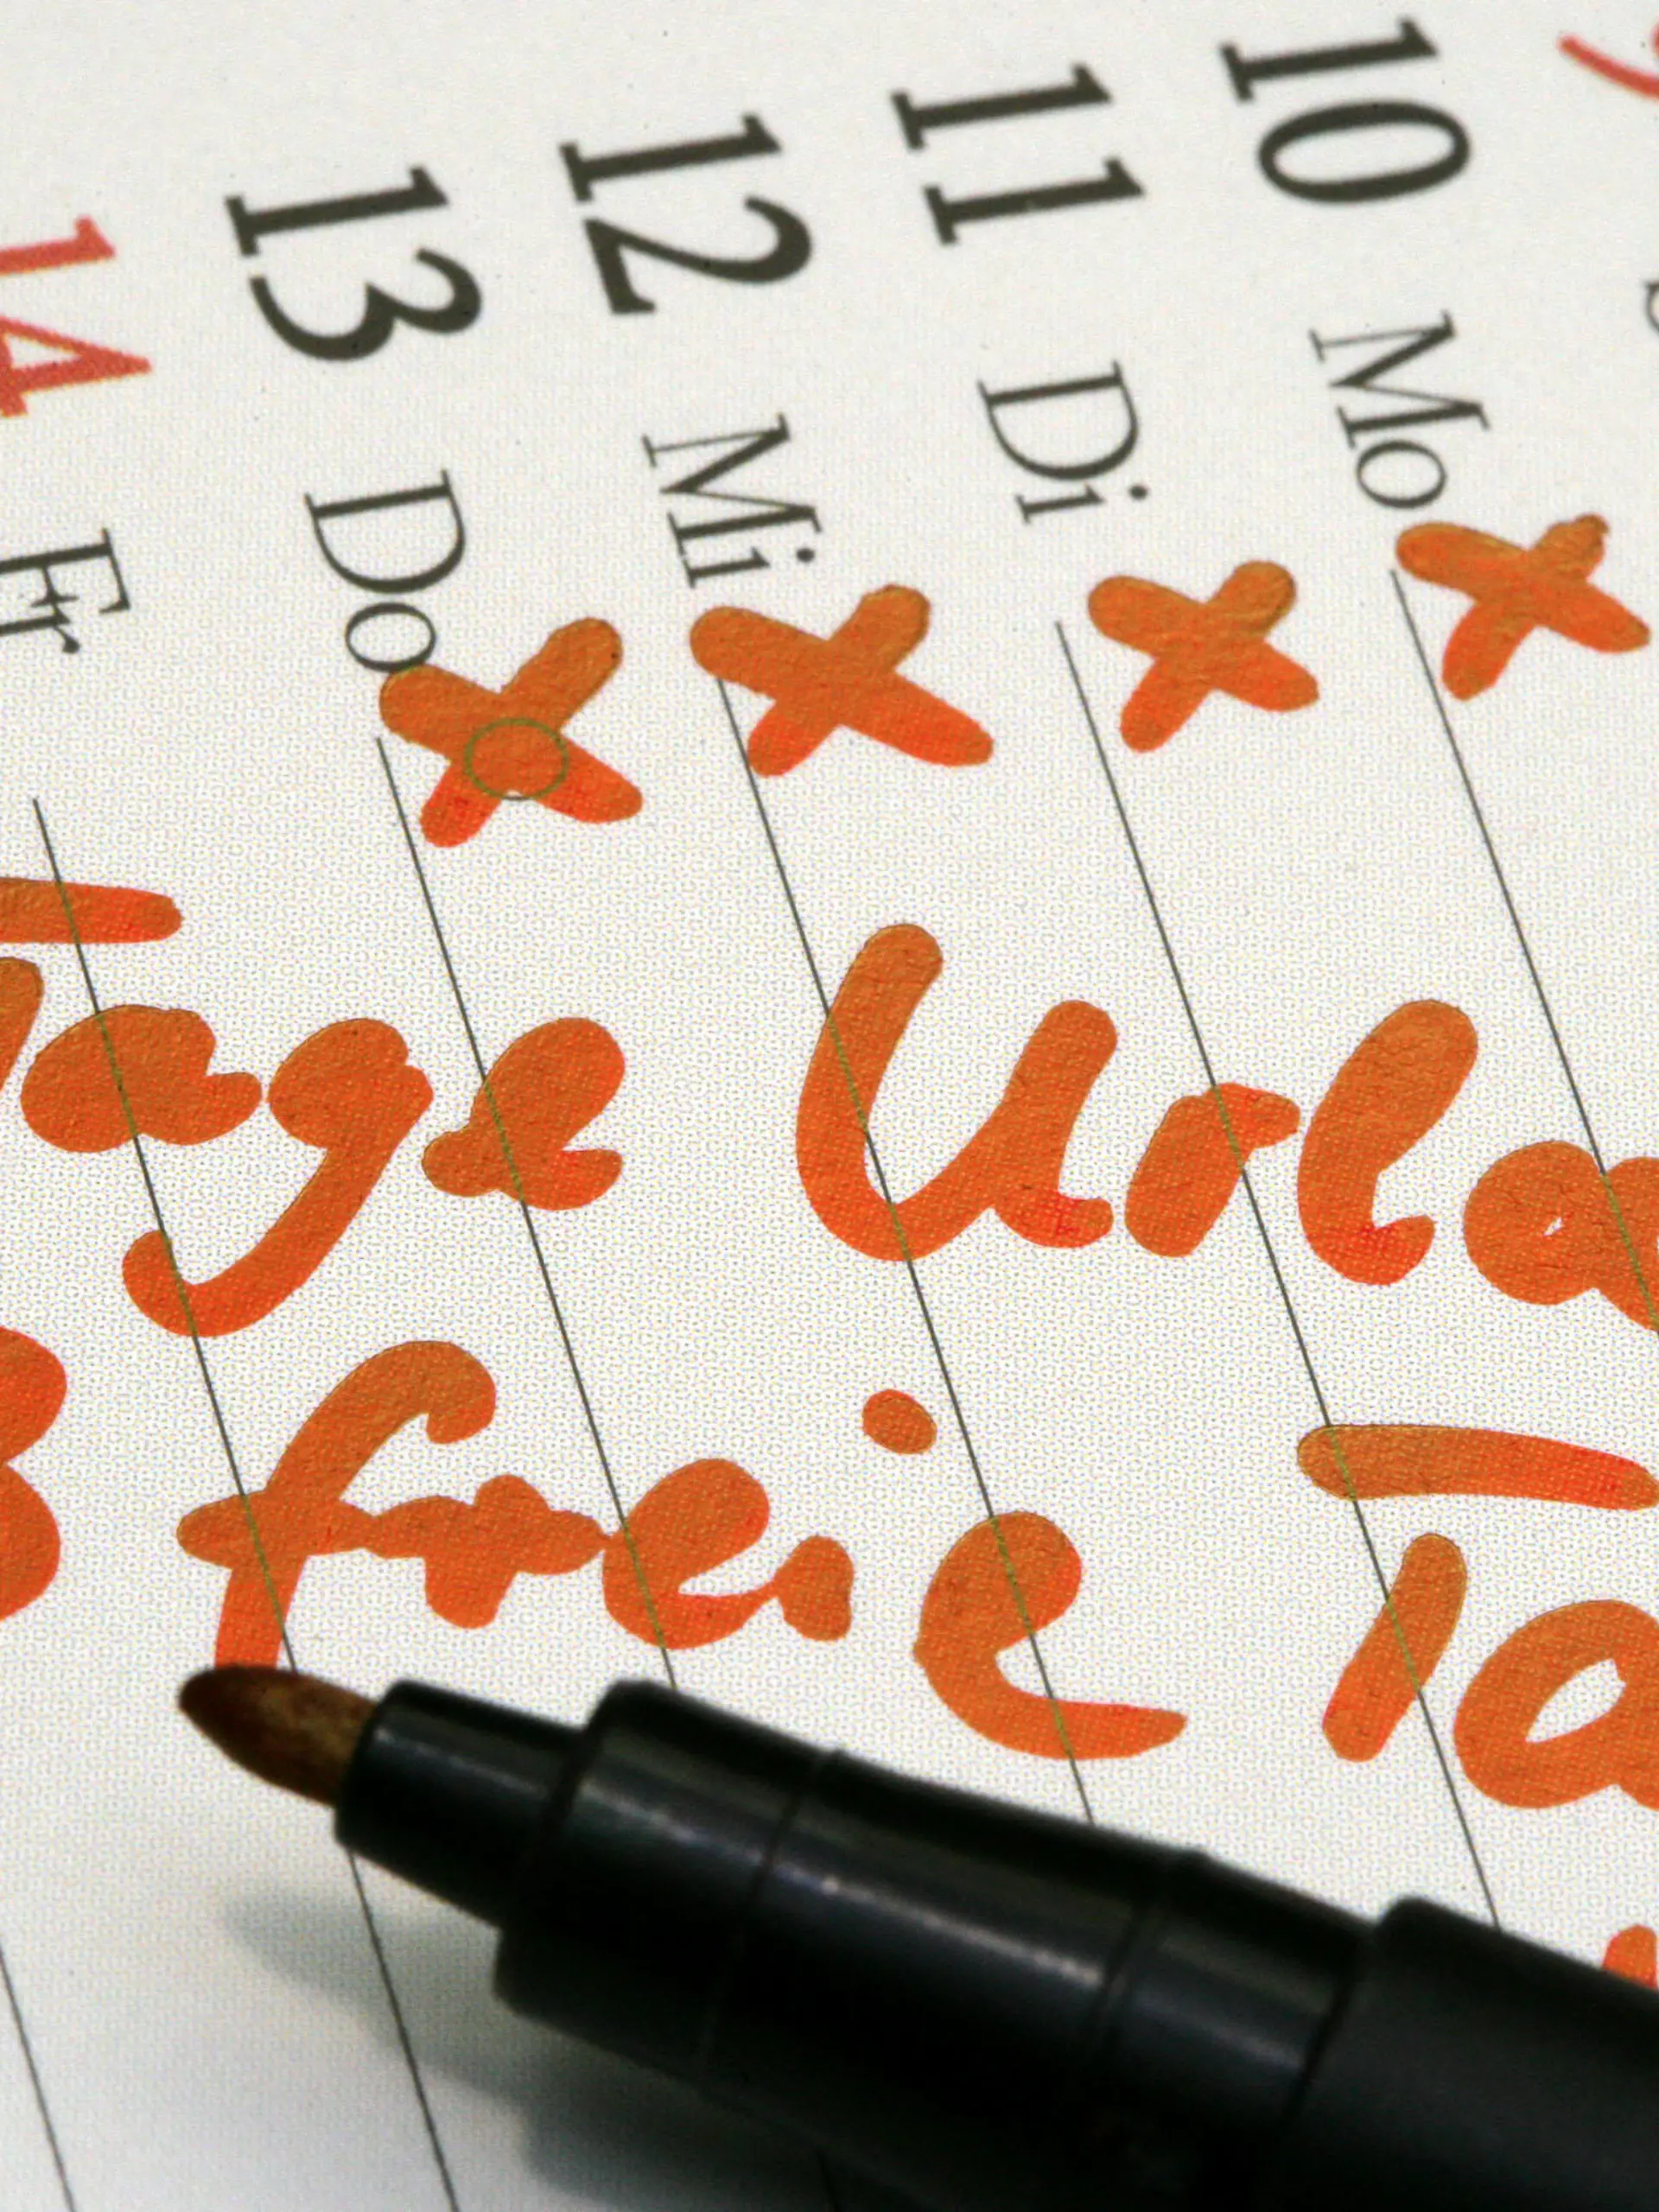 10 Mo
11 Di
12 Mi
13 Do
14 Fr
Tage Urla
freie Ta